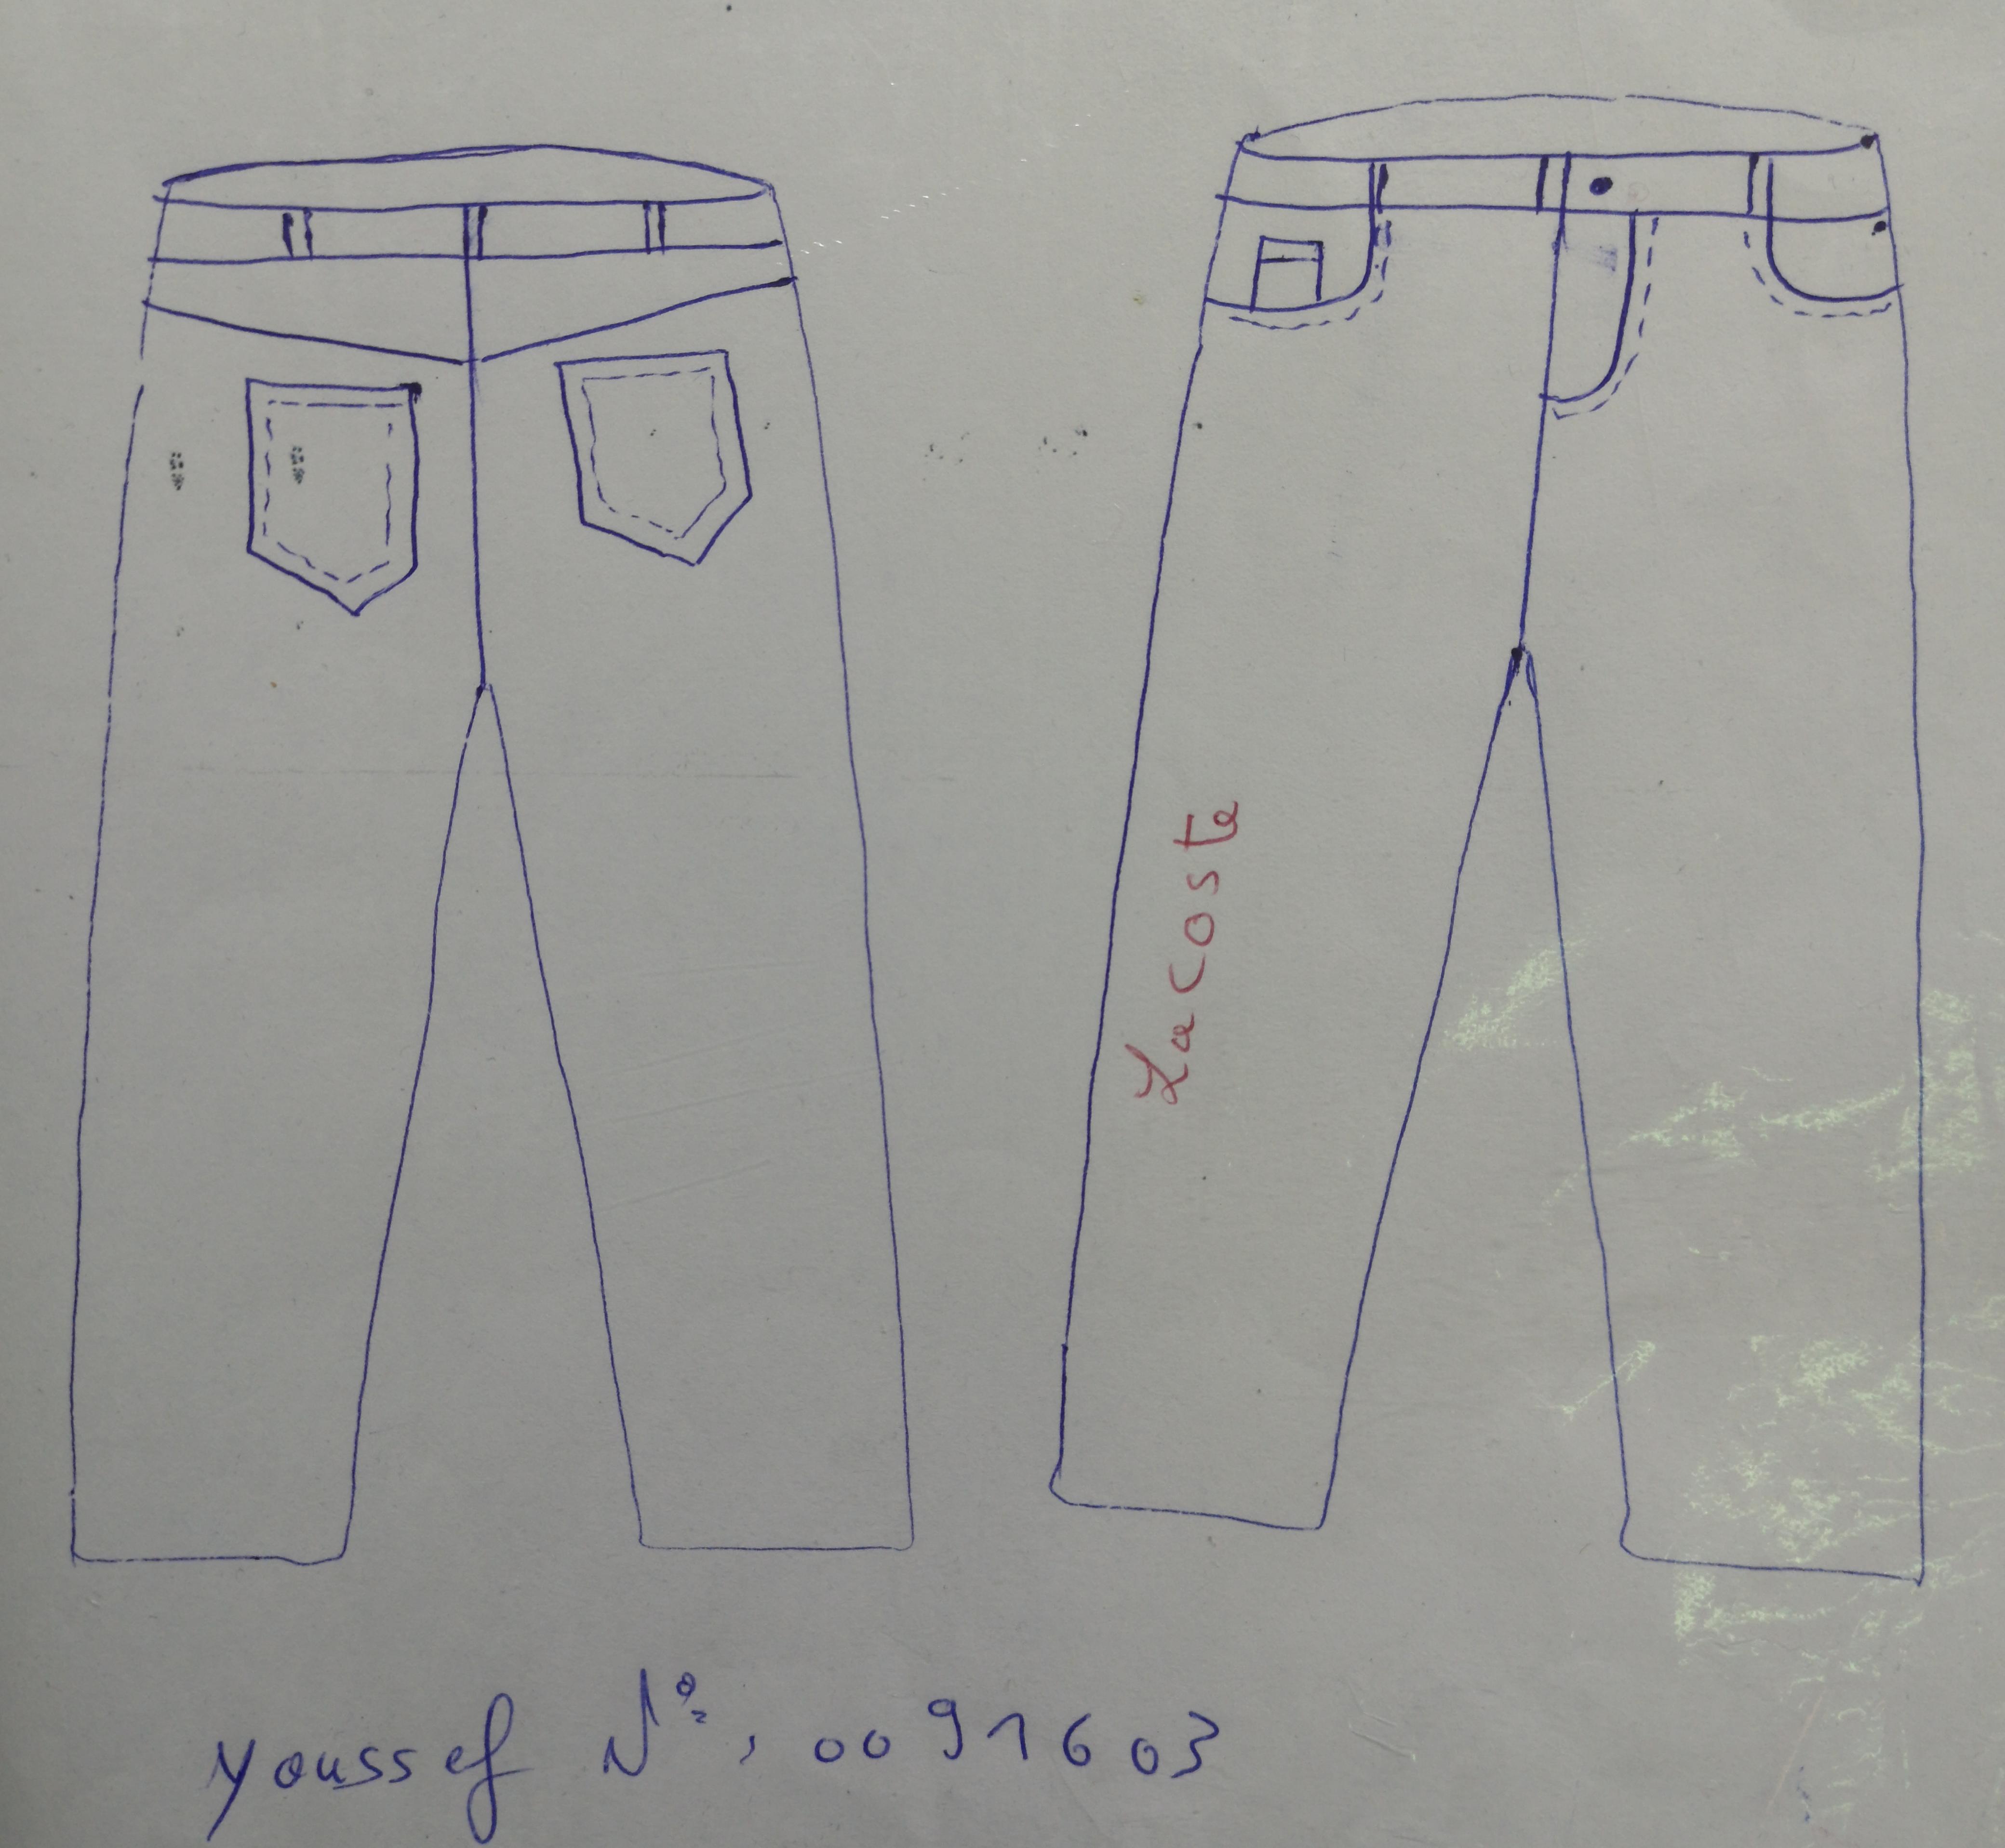 Lacoste
Youssef N°: 0091603